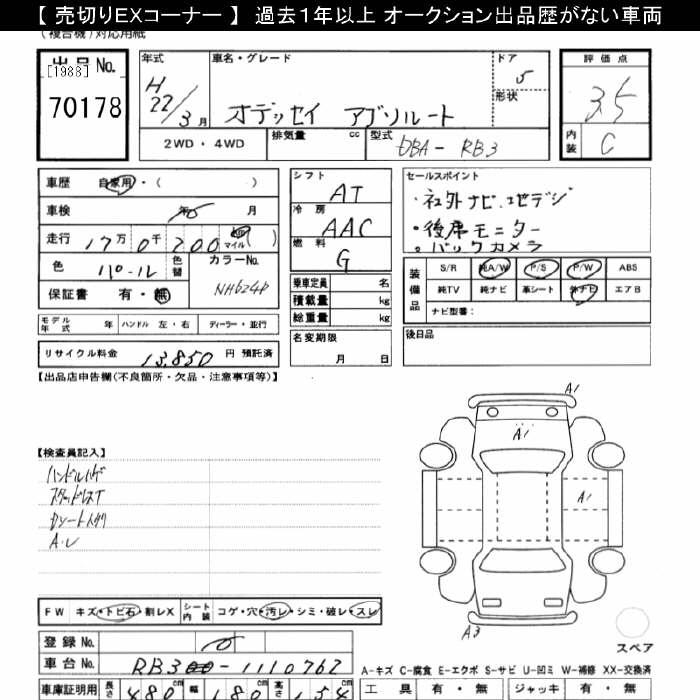 【 売切りEXコーナー 】 過去1年以上 オークション出品歴がない車両
(複合機)対応用紙
出品No.
[1988]
70178
年式
H
22/3月
車名・グレード
オデッセイ アブソルート
ドア
5
形状
評価点
3.5
内装
C
2WD・4WD
排気量 cc
型式
DBA-RB3
車歴 自家用・( )
車検 年 月
走行 17万0千200 マイル( )
色 パール
色替
カラーNo.
NH624P
保証書 有・無
モデル年式 年 ハンドル 左・右 ディーラー・並行
リサイクル料金 13,850 円 預託済
シフト
AT
冷房
AAC
燃料
G
乗車定員 名
積載量 kg
総重量 kg
名変期限
月 日
セールスポイント
・社外ナビ、地デジ
・後席モニター
・バックカメラ
装備品
S/R 純A/W P/S P/W ABS
純TV 純ナビ 革シート 外ナビ エアB
ナビ型番:
後日品
【出品店申告欄(不良箇所・欠品・注意事項等)】
【検査員記入】
ハンドルハゲ
A・レ
A1
A1
A1
A3
スペア
FW キズ・トビ石・割レX
シート内装 コゲ・穴・汚レ・シミ・破レ・スレ
登録No.
車台No. RB3-1110762
車庫証明用 長さ 480cm 幅 180cm 高さ 154cm
A-キズ C-腐食 E-エクボ S-サビ U-凹ミ W-補修 XX-交換済
工具 有・無 ジャッキ 有・無